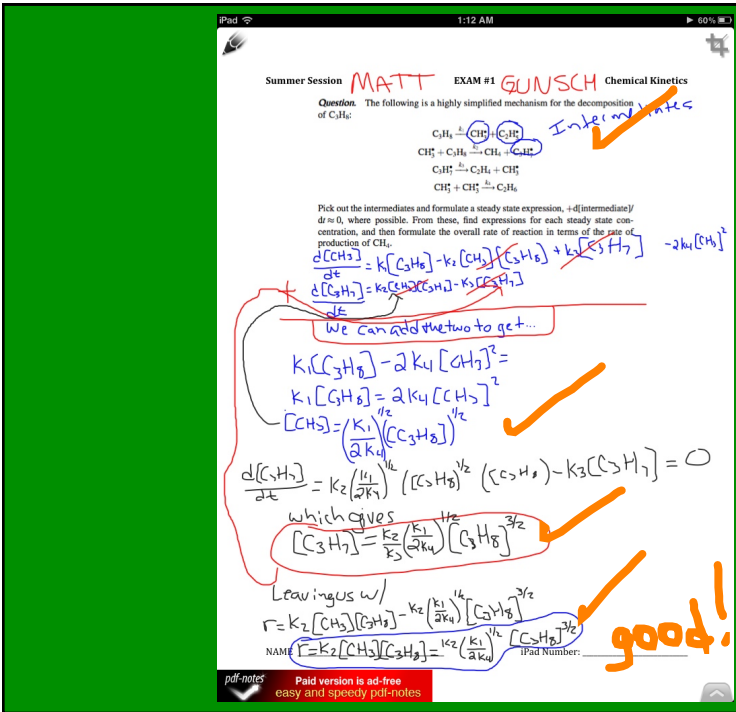 iPad 1:12 AM 60%
Summer Session MATT EXAM #1 GUNSCH Chemical Kinetics
Question. The following is a highly simplified mechanism for the decomposition
of C₃H₈:
Intermediates
C₃H₈ —k₁→ CH₃• + C₂H₅•
CH₃• + C₃H₈ —k₂→ CH₄ + C₃H₇•
C₃H₇• —k₃→ C₂H₄ + CH₃•
CH₃• + CH₃• —k₄→ C₂H₆
Pick out the intermediates and formulate a steady state expression, +d[intermediate]/
dt ≈ 0, where possible. From these, find expressions for each steady state con-
centration, and then formulate the overall rate of reaction in terms of the rate of
production of CH₄.
d[CH3]/dt = k₁[C₃H8] - k₂[CH₃][C₃H8] + k₃[C₃H₇] - 2k₄[CH₃]²
d[C₃H₇]/dt = k₂[CH₃][C₃H₈] - k₃[C₃H₇]
+
We can add the two to get...
k₁[C₃H8] - 2k₄[CH₃]² =
k₁[C₃H8] = 2k₄[CH₃]²
[CH₃] = (k₁/2k₄)^1/2 ([C₃H8])^1/2
d[C₃H₇]/dt = k₂(k₁/2k₄)^1/2 ([C₃H8])^1/2 ([C₃H8) - k3[C₃H₇] = 0
which gives
[C3H₇] = k₂/k₃ (k₁/2k₄)^1/2 [C₃H8]^3/2
Leaving us w/
r = k₂[CH₃][C₃H8] - k₂(k₁/2k₄)^1/2 [C₃H8]^3/2
NAME r = k₂[CH₃][C₃H8] = k₂(k₁/2k₄)^1/2 [C₃H8]^3/2 iPad Number: ____
good!
pdf-notes Paid version is ad-free
easy and speedy pdf-notes